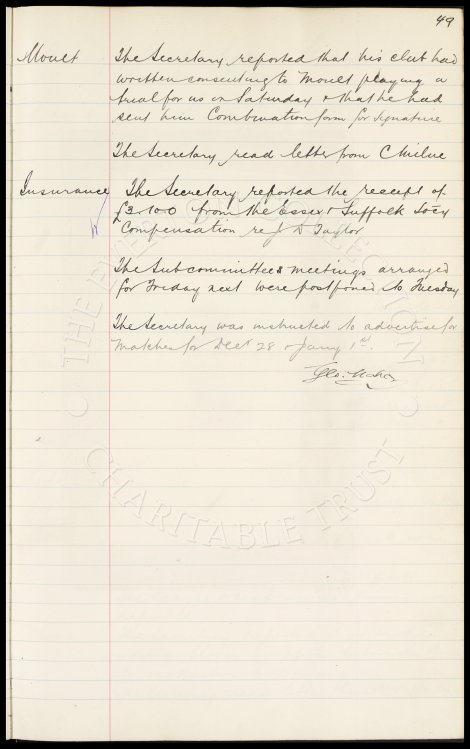 49
Moult The Secretary reported that his club had
written consenting to Moult playing a
trial for us on Saturday & that he had
sent him Combination form for signature
The Secretary read letter from C Milne
Insurance The Secretary reported the receipt of
£3.10.0 from the Essex & Suffolk Socy
Compensation re J D Taylor
The Subcommittees meetings arranged
for Friday next were postponed to Tuesday
The Secretary was instructed to advertise for
Matches for Dec 28 & Jany 1st.
Geo.
THE EVERTON COLLECTION
CHARITABLE TRUST